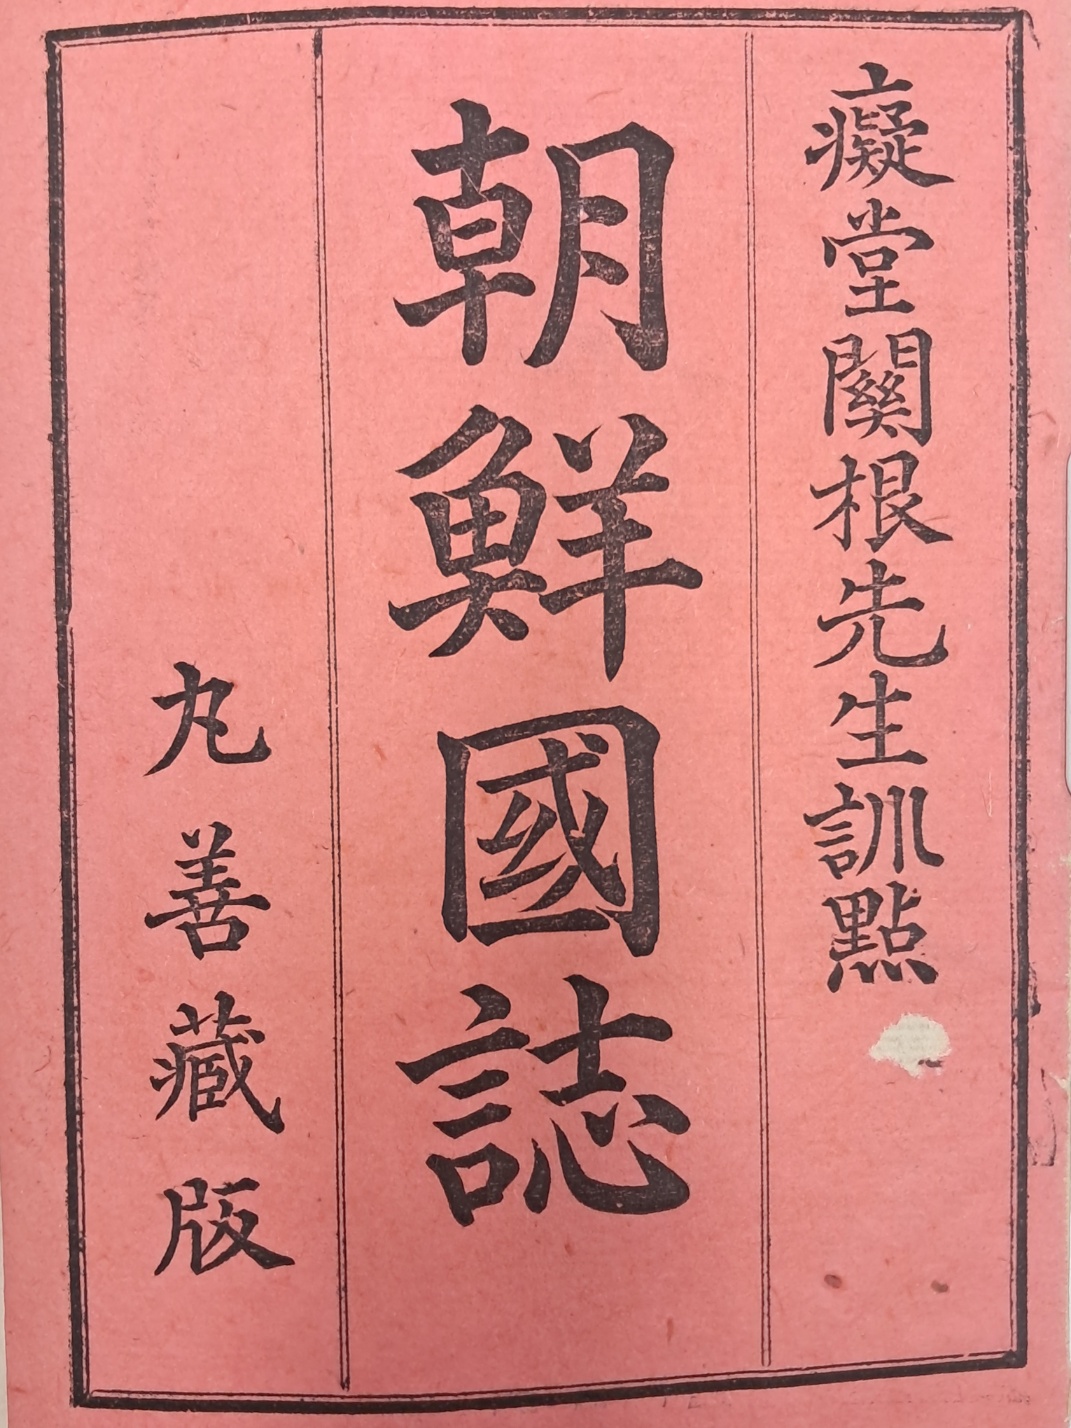 癡堂關根先生訓點
朝鮮國誌
丸善藏版